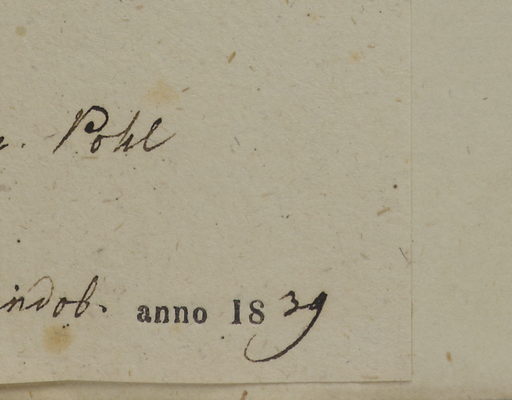 . Pohl
indob. anno 1839